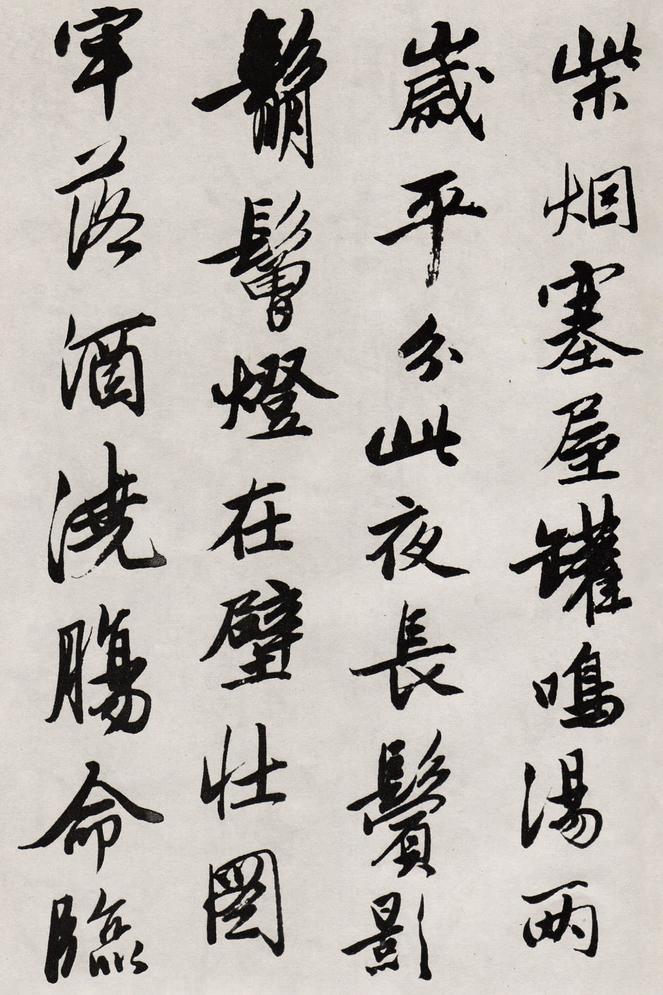 柴烟塞屋罐鳴湯两
歲平分此夜長鬢影
鬅鬙燈在壁壯圖
牢落酒澆腸命臨